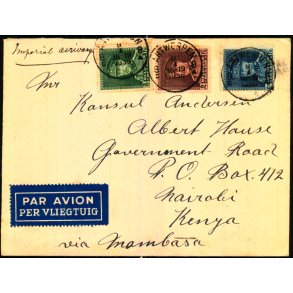 Imperial airways
ANTWERPEN
Mr
Konsul Andersen
Albert House
Government Road
P.O. Box 412
Nairobi
Kenya
via Mombasa
PAR AVION
PER VLIEGTUIG